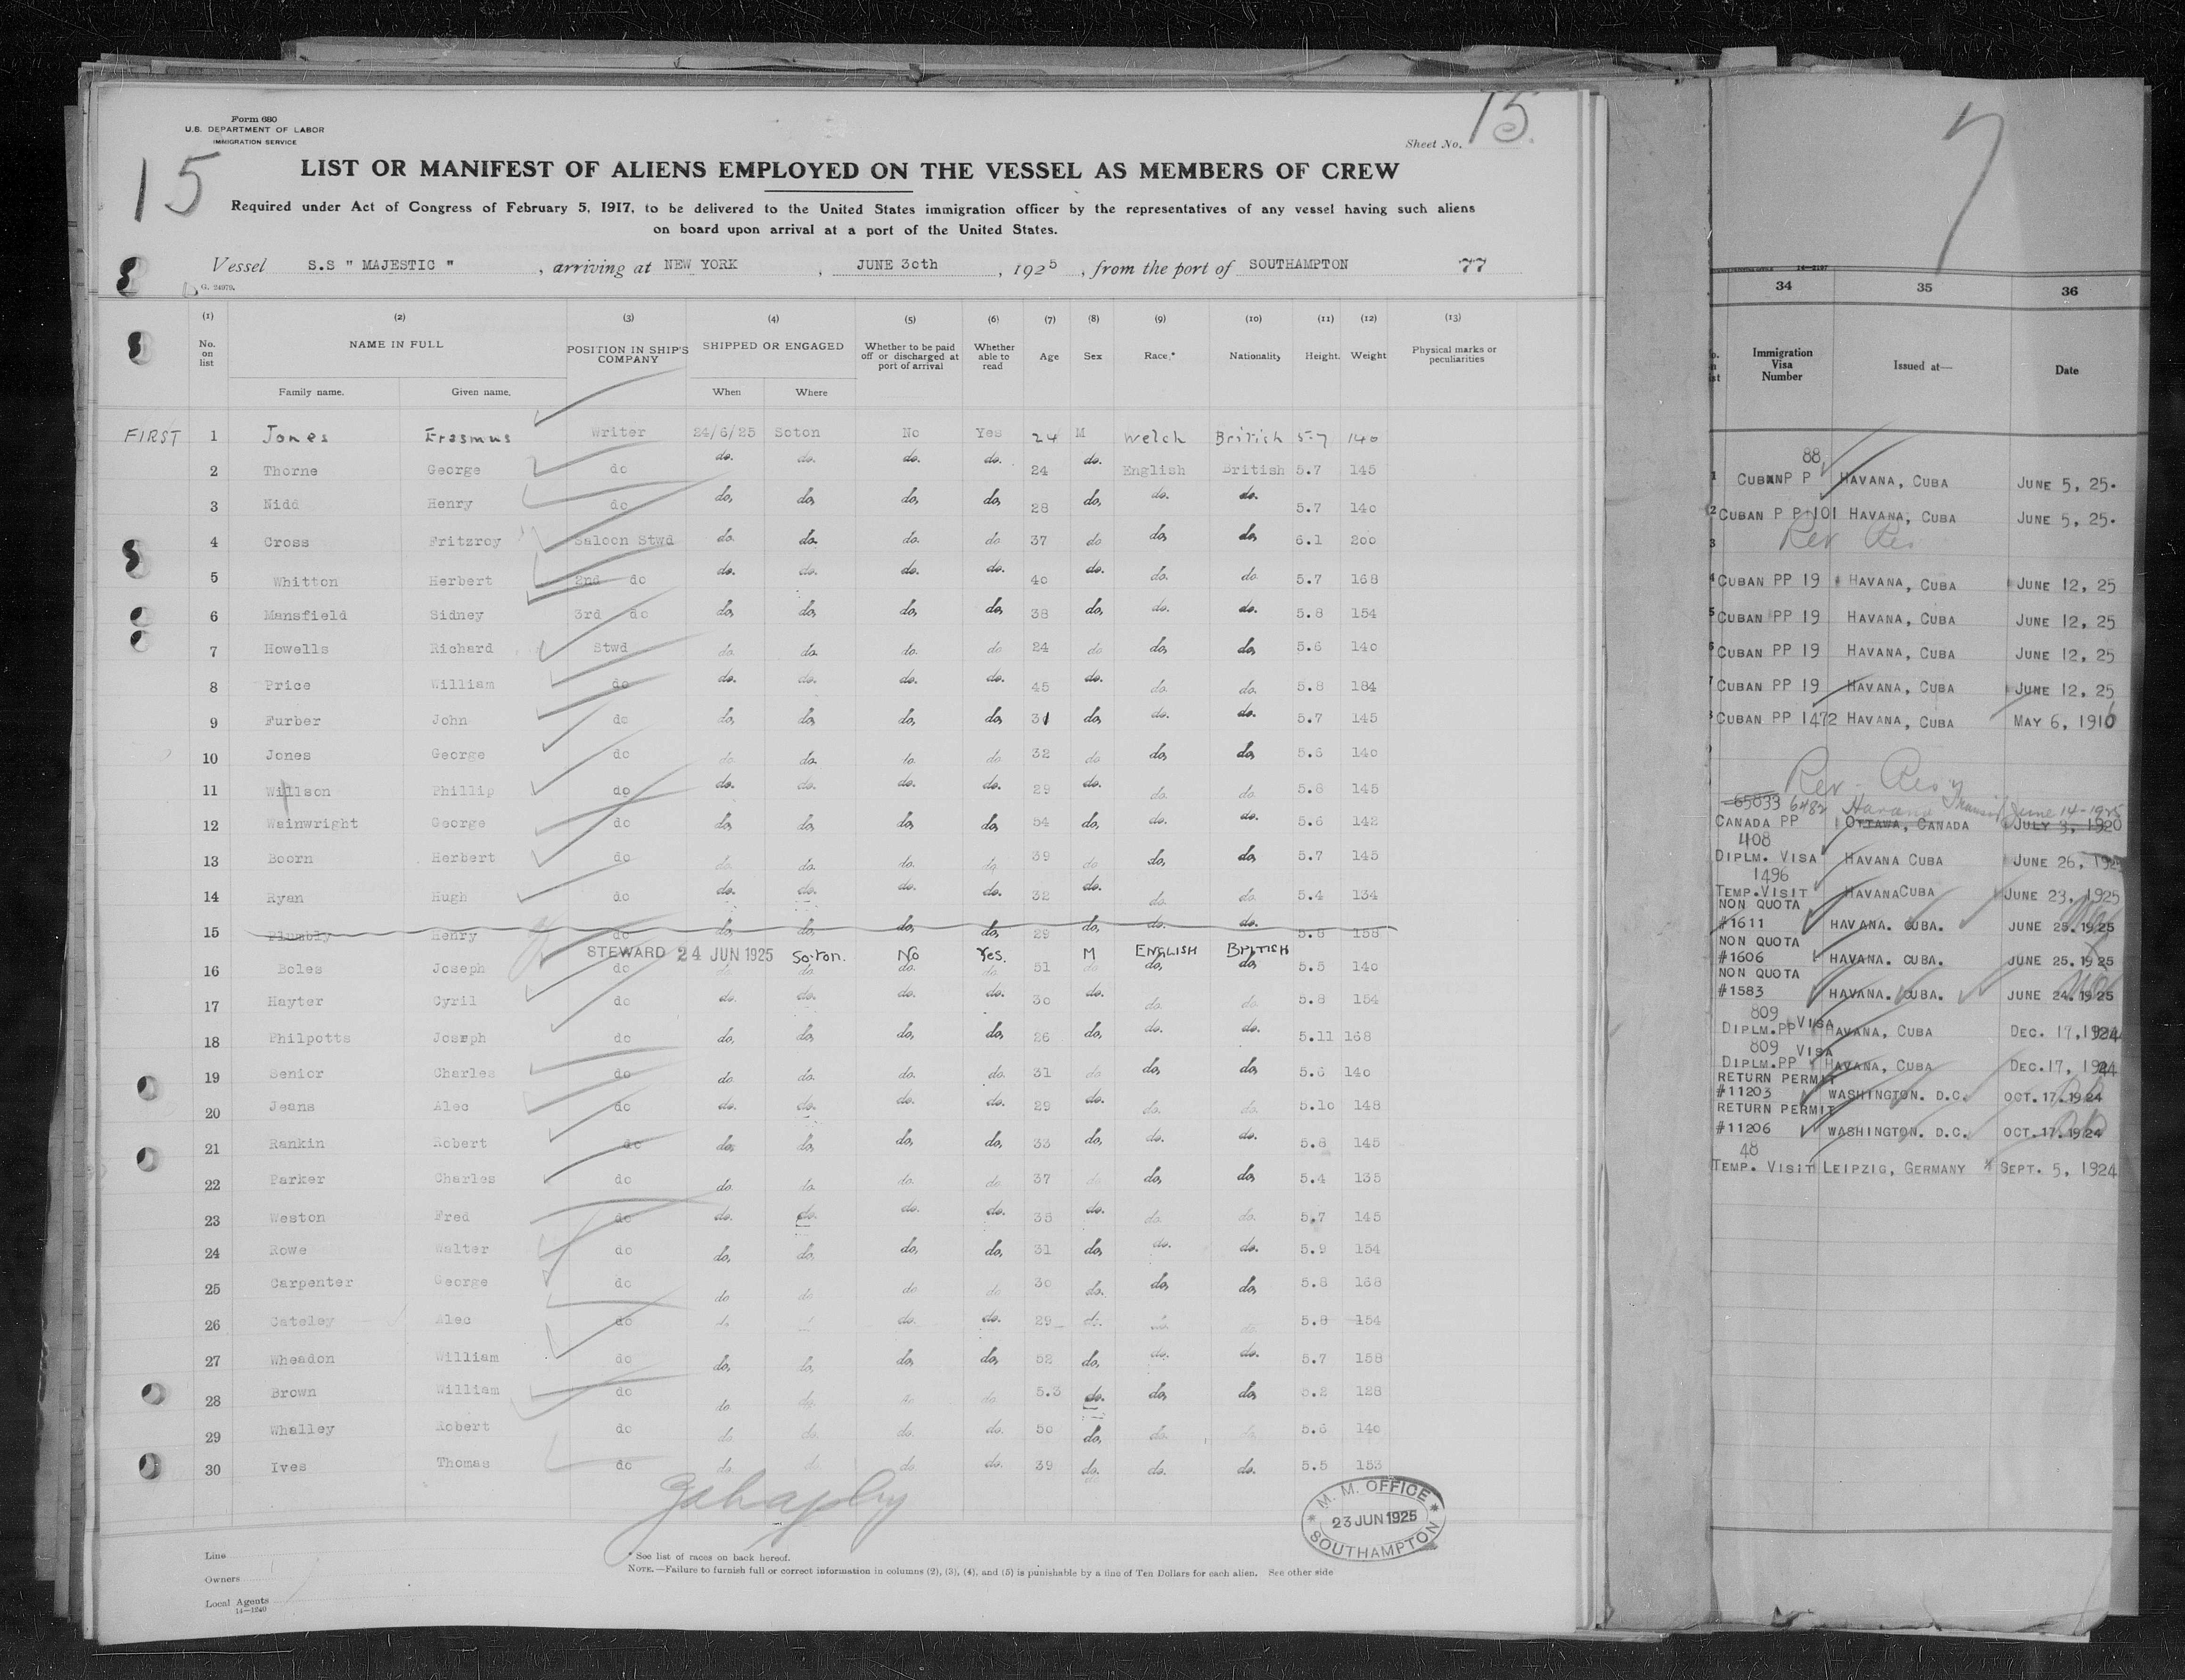 Form 680
U.S. DEPARTMENT OF LABOR
IMMIGRATION SERVICE
15
Sheet No. 15.
LIST OR MANIFEST OF ALIENS EMPLOYED ON THE VESSEL AS MEMBERS OF CREW
Required under Act of Congress of February 5, 1917, to be delivered to the United States immigration officer by the representatives of any vessel having such aliens
on board upon arrival at a port of the United States.
Vessel S.S " MAJESTIC " , arriving at NEW YORK , JUNE 30th , 1925 , from the port of SOUTHAMPTON 77
G. 24979.
(1) (2) (3) (4) (5) (6) (7) (8) (9) (10) (11) (12) (13)
No. on list NAME IN FULL POSITION IN SHIP'S COMPANY SHIPPED OR ENGAGED Whether to be paid off or discharged at port of arrival Whether able to read Age Sex Race.* Nationality Height. Weight Physical marks or peculiarities
Family name. Given name. When Where
FIRST 1 Jones Erasmus Writer 24/6/25 Soton No Yes 24 M Welch British 5-7 140
2 Thorne George do do. do. do. do. 24 do. English British 5.7 145
3 Nidd Henry do do, do, do, do, 28 do, do. do. 5.7 140
4 Cross Fritzroy Saloon Stwd do. do. do. do 37 do do, do, 6.1 200
5 Whitton Herbert 2nd do do. do. do. do. 40 do. do. do 5.7 168
6 Mansfield Sidney 3rd do do, do, do, do, 38 do, do. do. 5.8 154
7 Howells Richard Stwd do. do. do. do 24 do do, do, 5.6 140
8 Price William do do. do. do. do. 45 do. do. do. 5.8 184
9 Furber John do do, do, do, do, 31 do, do. do. 5.7 145
10 Jones George do do. do. do. do 32 do do, do, 5.6 140
11 Willson Phillip do do. do. do. do. 29 do. do. do. 5.8 145
12 Wainwright George do do, do, do, do, 54 do, do. do. 5.6 142
13 Boorn Herbert do do. do. do. do. 39 do do, do, 5.7 145
14 Ryan Hugh do do. do. do. do. 32 do. do. do. 5.4 134
15 Plumbly Henry do do, do, do, do, 29 do, do. do. 5.8 158
STEWARD 24 JUN 1925 So'ton. No Yes. M ENGLISH BRITISH
16 Boles Joseph do do do. do. do 51 do do, do, 5.5 140
17 Hayter Cyril do do. do. do. do. 30 do. do. do. 5.8 154
18 Philpotts Joseph do do, do, do, do, 26 do, do. do. 5.11 168
19 Senior Charles do do. do. do. do. 31 do do, do, 5.6 140
20 Jeans Alec do do. do. do. do. 29 do. do. do. 5.10 148
21 Rankin Robert do do, do, do, do, 33 do, do. do. 5.8 145
22 Parker Charles do do. do. do. do. 37 do do, do, 5.4 135
23 Weston Fred do do. do. do. do. 35 do. do. do. 5.7 145
24 Rowe Walter do do, do, do, do, 31 do, do. do. 5.9 154
25 Carpenter George do do do do do 30 do. do, do, 5.8 168
26 Cateley Alec do do. do. do. 29 do. do. do. 5.8 154
27 Wheadon William do do, do, do, do, 52 do, do. do. 5.7 158
28 Brown William do do do. do do. 5.3 do. do, do, 5.2 128
29 Whalley Robert do do. do. do. do. 50 do, do. 5.6 140
30 Ives Thomas do do. do do do. 39 do. do. do. 5.5 153
M. M. OFFICE
23 JUN 1925
SOUTHAMPTON
Line
Owners
Local Agents
14—1240
* See list of races on back hereof.
NOTE.—Failure to furnish full or correct information in columns (2), (3), (4), and (5) is punishable by a fine of Ten Dollars for each alien. See other side
7
14—2107
34 35 36
Immigration Visa Number Issued at— Date
88
1 CUBAN P P HAVANA, CUBA JUNE 5, 25.
2 CUBAN P P 101 HAVANA, CUBA JUNE 5, 25.
3 Rev Res
4 CUBAN PP 19 HAVANA, CUBA JUNE 12, 25
5 CUBAN PP 19 HAVANA, CUBA JUNE 12, 25
6 CUBAN PP 19 HAVANA, CUBA JUNE 12, 25
7 CUBAN PP 19 HAVANA, CUBA JUNE 12, 25
8 CUBAN PP 1472 HAVANA, CUBA MAY 6, 1916
Rev - Res
65033 6482 Havana Transit June 14-1925
CANADA PP OTTAWA, CANADA JULY 3, 1920
408
DIPLM. VISA HAVANA CUBA JUNE 26, 1925
1496
TEMP. VISIT HAVANA CUBA JUNE 23, 1925
NON QUOTA
#1611 HAVANA. CUBA. JUNE 25. 1925
NON QUOTA
#1606 HAVANA. CUBA. JUNE 25. 1925
NON QUOTA
#1583 HAVANA. CUBA. JUNE 24. 1925
809
DIPLM.PP VISA HAVANA, CUBA DEC. 17, 1924
809
DIPLM.PP VISA HAVANA, CUBA DEC. 17, 1924
RETURN PERMIT
#11203 WASHINGTON. D.C. OCT. 17. 1924
RETURN PERMIT
#11206 WASHINGTON. D.C. OCT. 17. 1924
48
TEMP. VISIT LEIPZIG, GERMANY SEPT. 5, 1924